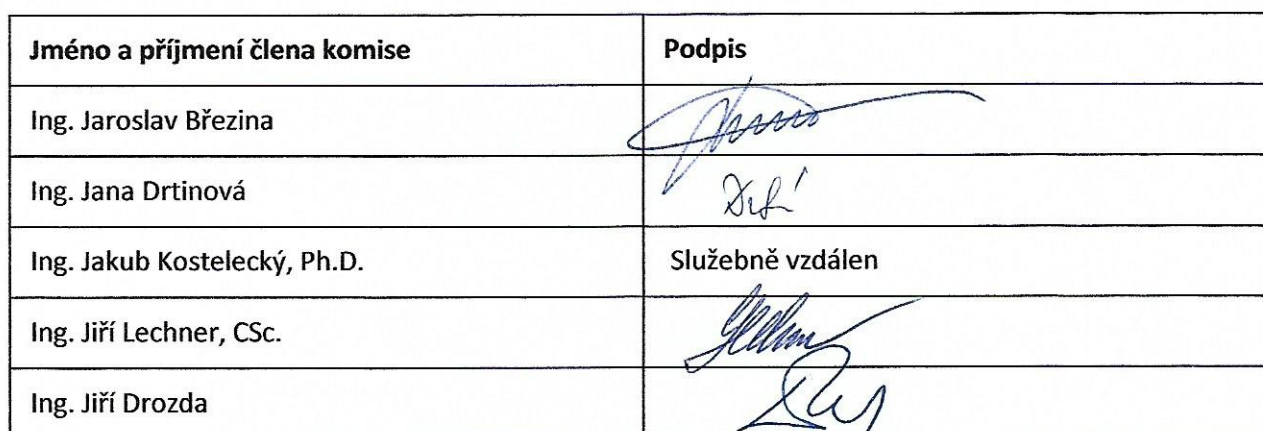 Jméno a příjmení člena komise Podpis
Ing. Jaroslav Březina
Ing. Jana Drtinová
Ing. Jakub Kostelecký, Ph.D. Služebně vzdálen
Ing. Jiří Lechner, CSc.
Ing. Jiří Drozda